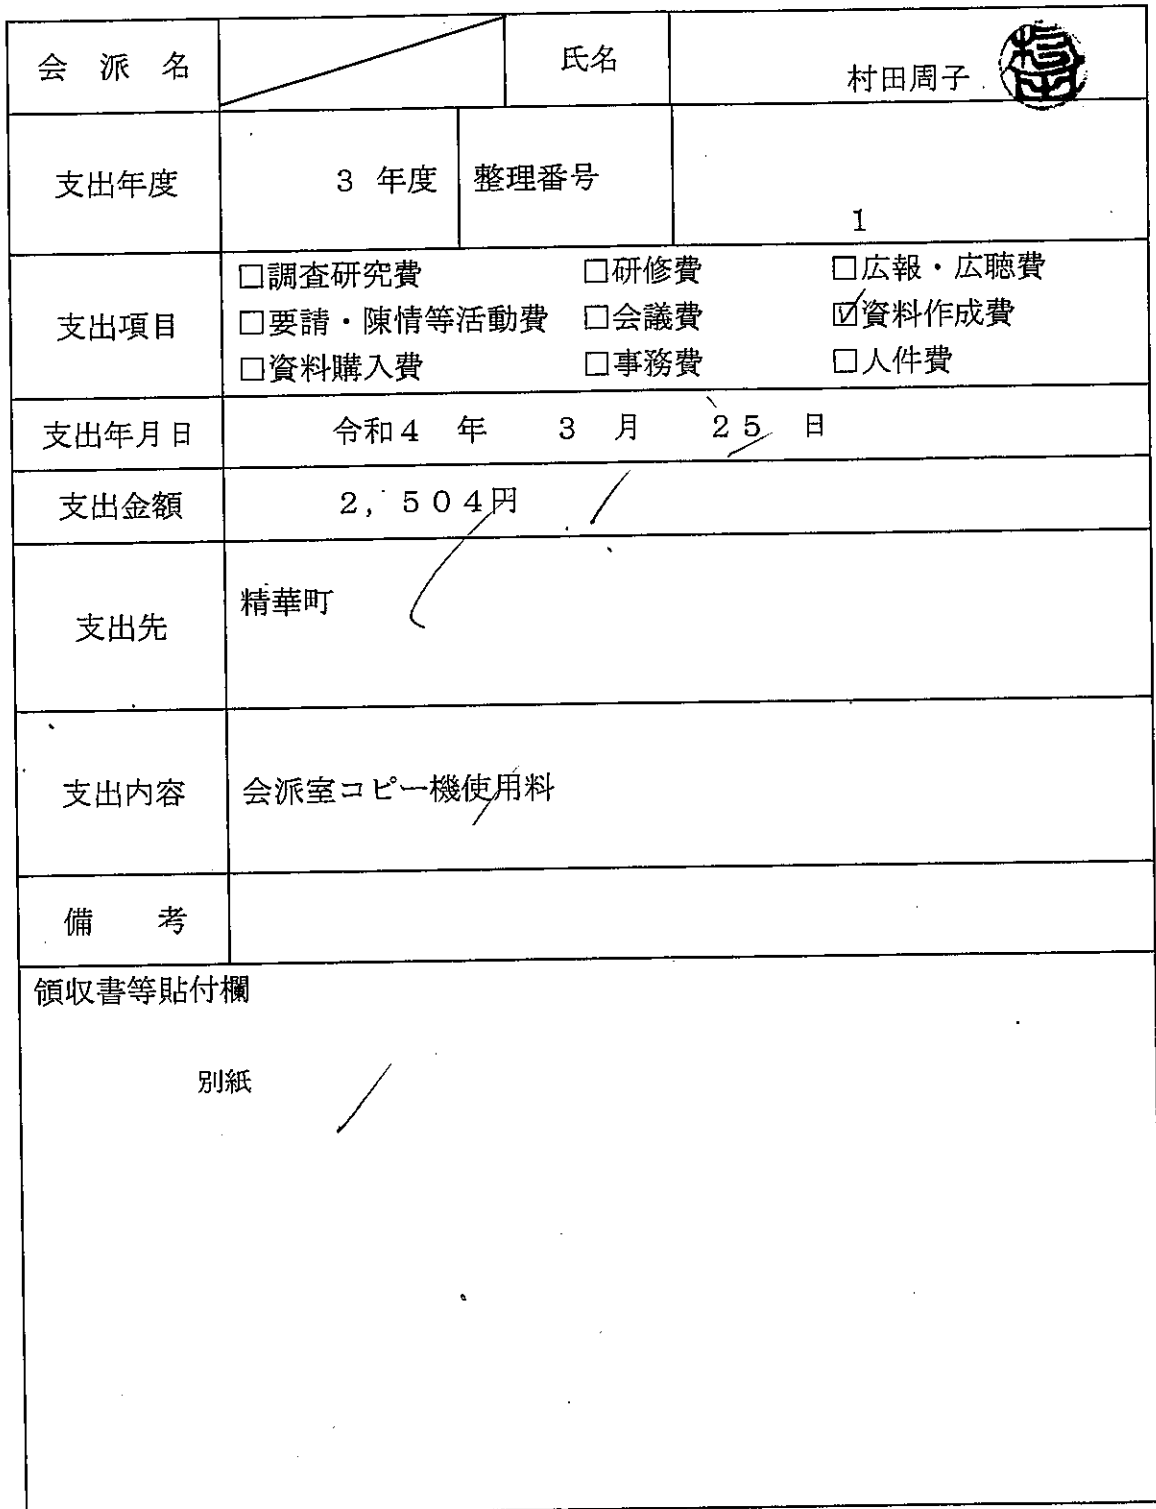 会派名 氏名 村田周子
支出年度 3年度 整理番号 1
支出項目
□調査研究費 □研修費 □広報・広聴費
□要請・陳情等活動費 □会議費 ☑資料作成費
□資料購入費 □事務費 □人件費
支出年月日 令和4年 3月 25日
支出金額 2,504円
支出先 精華町
支出内容 会派室コピー機使用料
備考
領収書等貼付欄
別紙